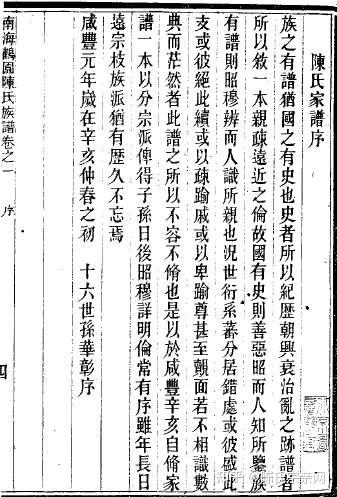 陳氏家譜序
族之有譜猶國之有史也史者所以紀歷朝興衰治亂之跡譜者
所以敘一本親疎遠近之倫故國有史則善惡昭而人知所鑒族
有譜則昭穆辨而人識所親也況世衍系蕃分居錯處或彼戚此
支或彼絕此續或以疎踰戚或以卑踰尊甚至覿面若不相識數
典而茫然者此譜之所以不容不脩也是以於咸豐辛亥自脩家
譜一本以分宗派俾得子孫日後昭穆詳明倫常有序雖年長日
遠宗枝族派猶有歷久不忘焉
咸豐元年歲在辛亥仲春之初　十六世孫華彰序
南海鶴園陳氏族譜卷之一　序　四